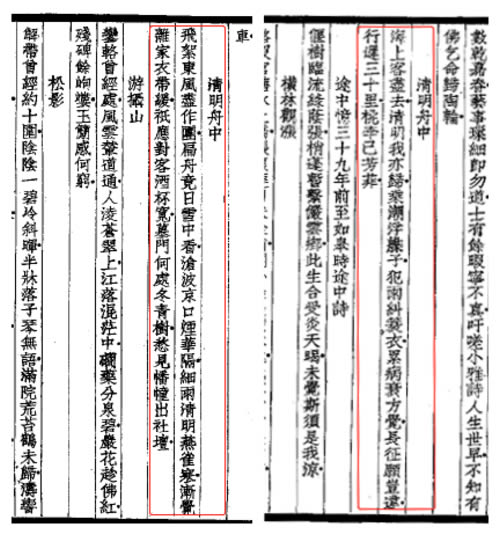 數乾嘉眷藝事瑣細卽勿道士有餘暇寧不真吁嗟小雅詩人生世早不知有
佛乞命歸陶輪
清明舟中
海上客盡去清明我亦歸棄潮浮艓子犯雨糾蓑衣累病衰方覺長征願豈違
行遲三十里桃李已芳菲
途中憶三十九年前至如皋時途中詩
偃樹臨流綠蔭張梢蓬暫繫儼雲鄉此生合受炎天暍未覺斯須是我涼
橫林觀漲
車
清明舟中
飛絮東風盡作團扁舟竟日雪中看滄波京口煙華隔細雨清明燕雀寒漸覺
離家衣帶緩祇應對客酒杯寬墓門何處冬青樹愁見幡幢出社壇
游攝山
鑾輅曾經處風雲輦道通人淩蒼翠上江落混茫中礀藥分泉碧巖花趁佛紅
殘碑餘岣嶁玉蘭感何窮
松影
解帶曾經約十圍陰陰一碧岭斜暉半牀落子琴無語滿院荒苔鶴未歸濤響